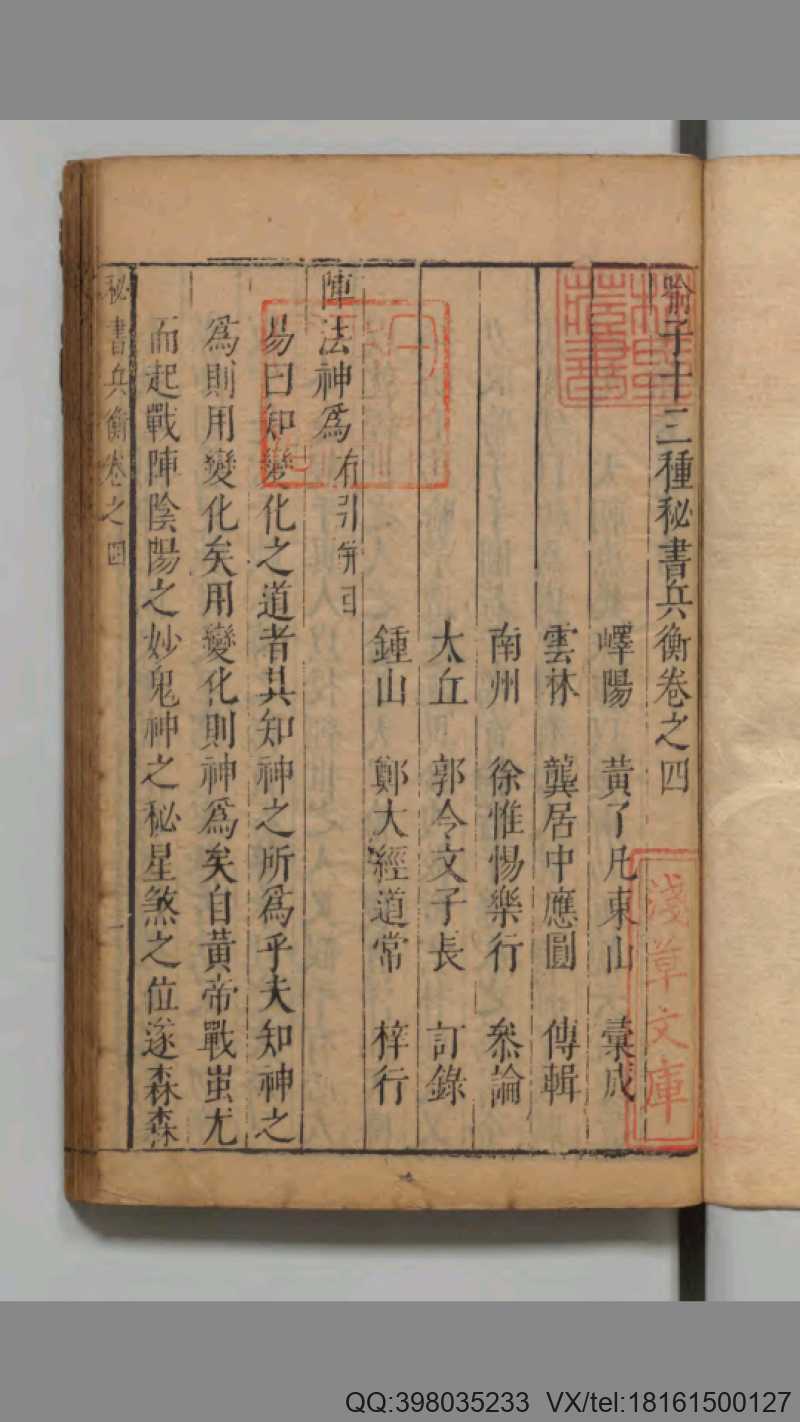 喻子十三種秘書兵衡卷之四
嶧陽 黃了凡東山 彙成
雲林 龔居中應圓 傳輯
南州 徐惟惕樂行 叅論
太丘 郭令文子長 訂錄
鍾山 鄭大經道常 梓行
陣法神爲
易曰知變化之道者其知神之所爲乎夫知神之
爲則用變化矣用變化則神爲矣自黃帝戰蚩尤
而起戰陣陰陽之妙鬼神之秘星煞之位遂森森
秘書兵衡卷之四 一
淺草文庫
QQ:398035233 VX/tel:18161500127